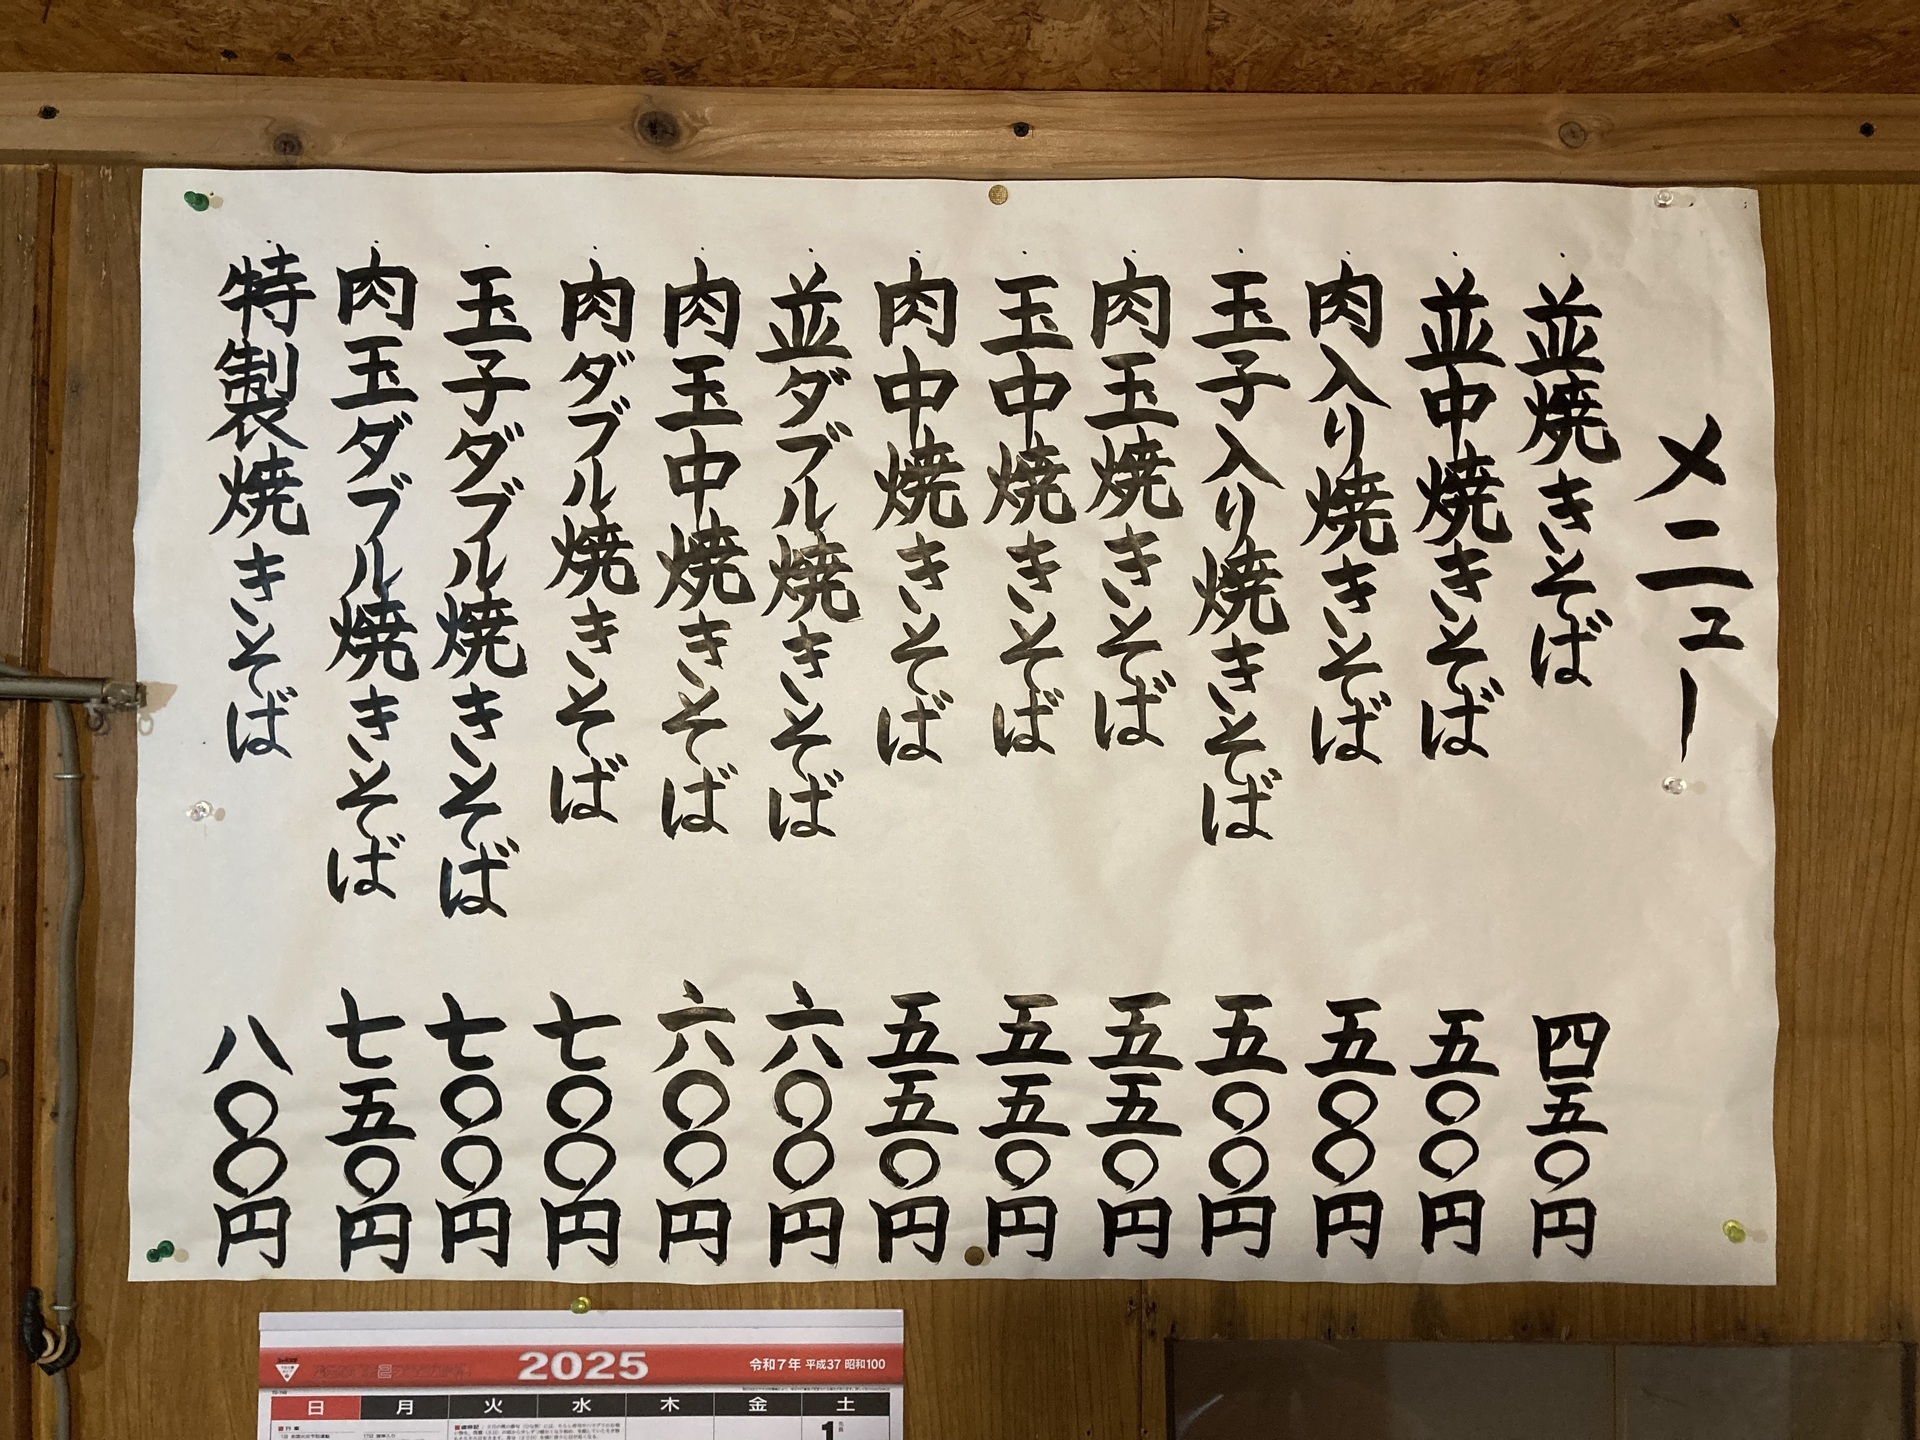 メニュー
並焼きそば 四五〇円
並中焼きそば 五〇〇円
肉入り焼きそば 五〇〇円
玉子入り焼きそば 五〇〇円
肉玉焼きそば 五五〇円
玉中焼きそば 五五〇円
肉中焼きそば 五五〇円
並ダブル焼きそば 六〇〇円
肉玉中焼きそば 六〇〇円
肉ダブル焼きそば 七〇〇円
玉子ダブル焼きそば 七〇〇円
肉玉ダブル焼きそば 七五〇円
特製焼きそば 八〇〇円
2025
令和7年 平成37 昭和100
日 月 火 水 木 金 土
1